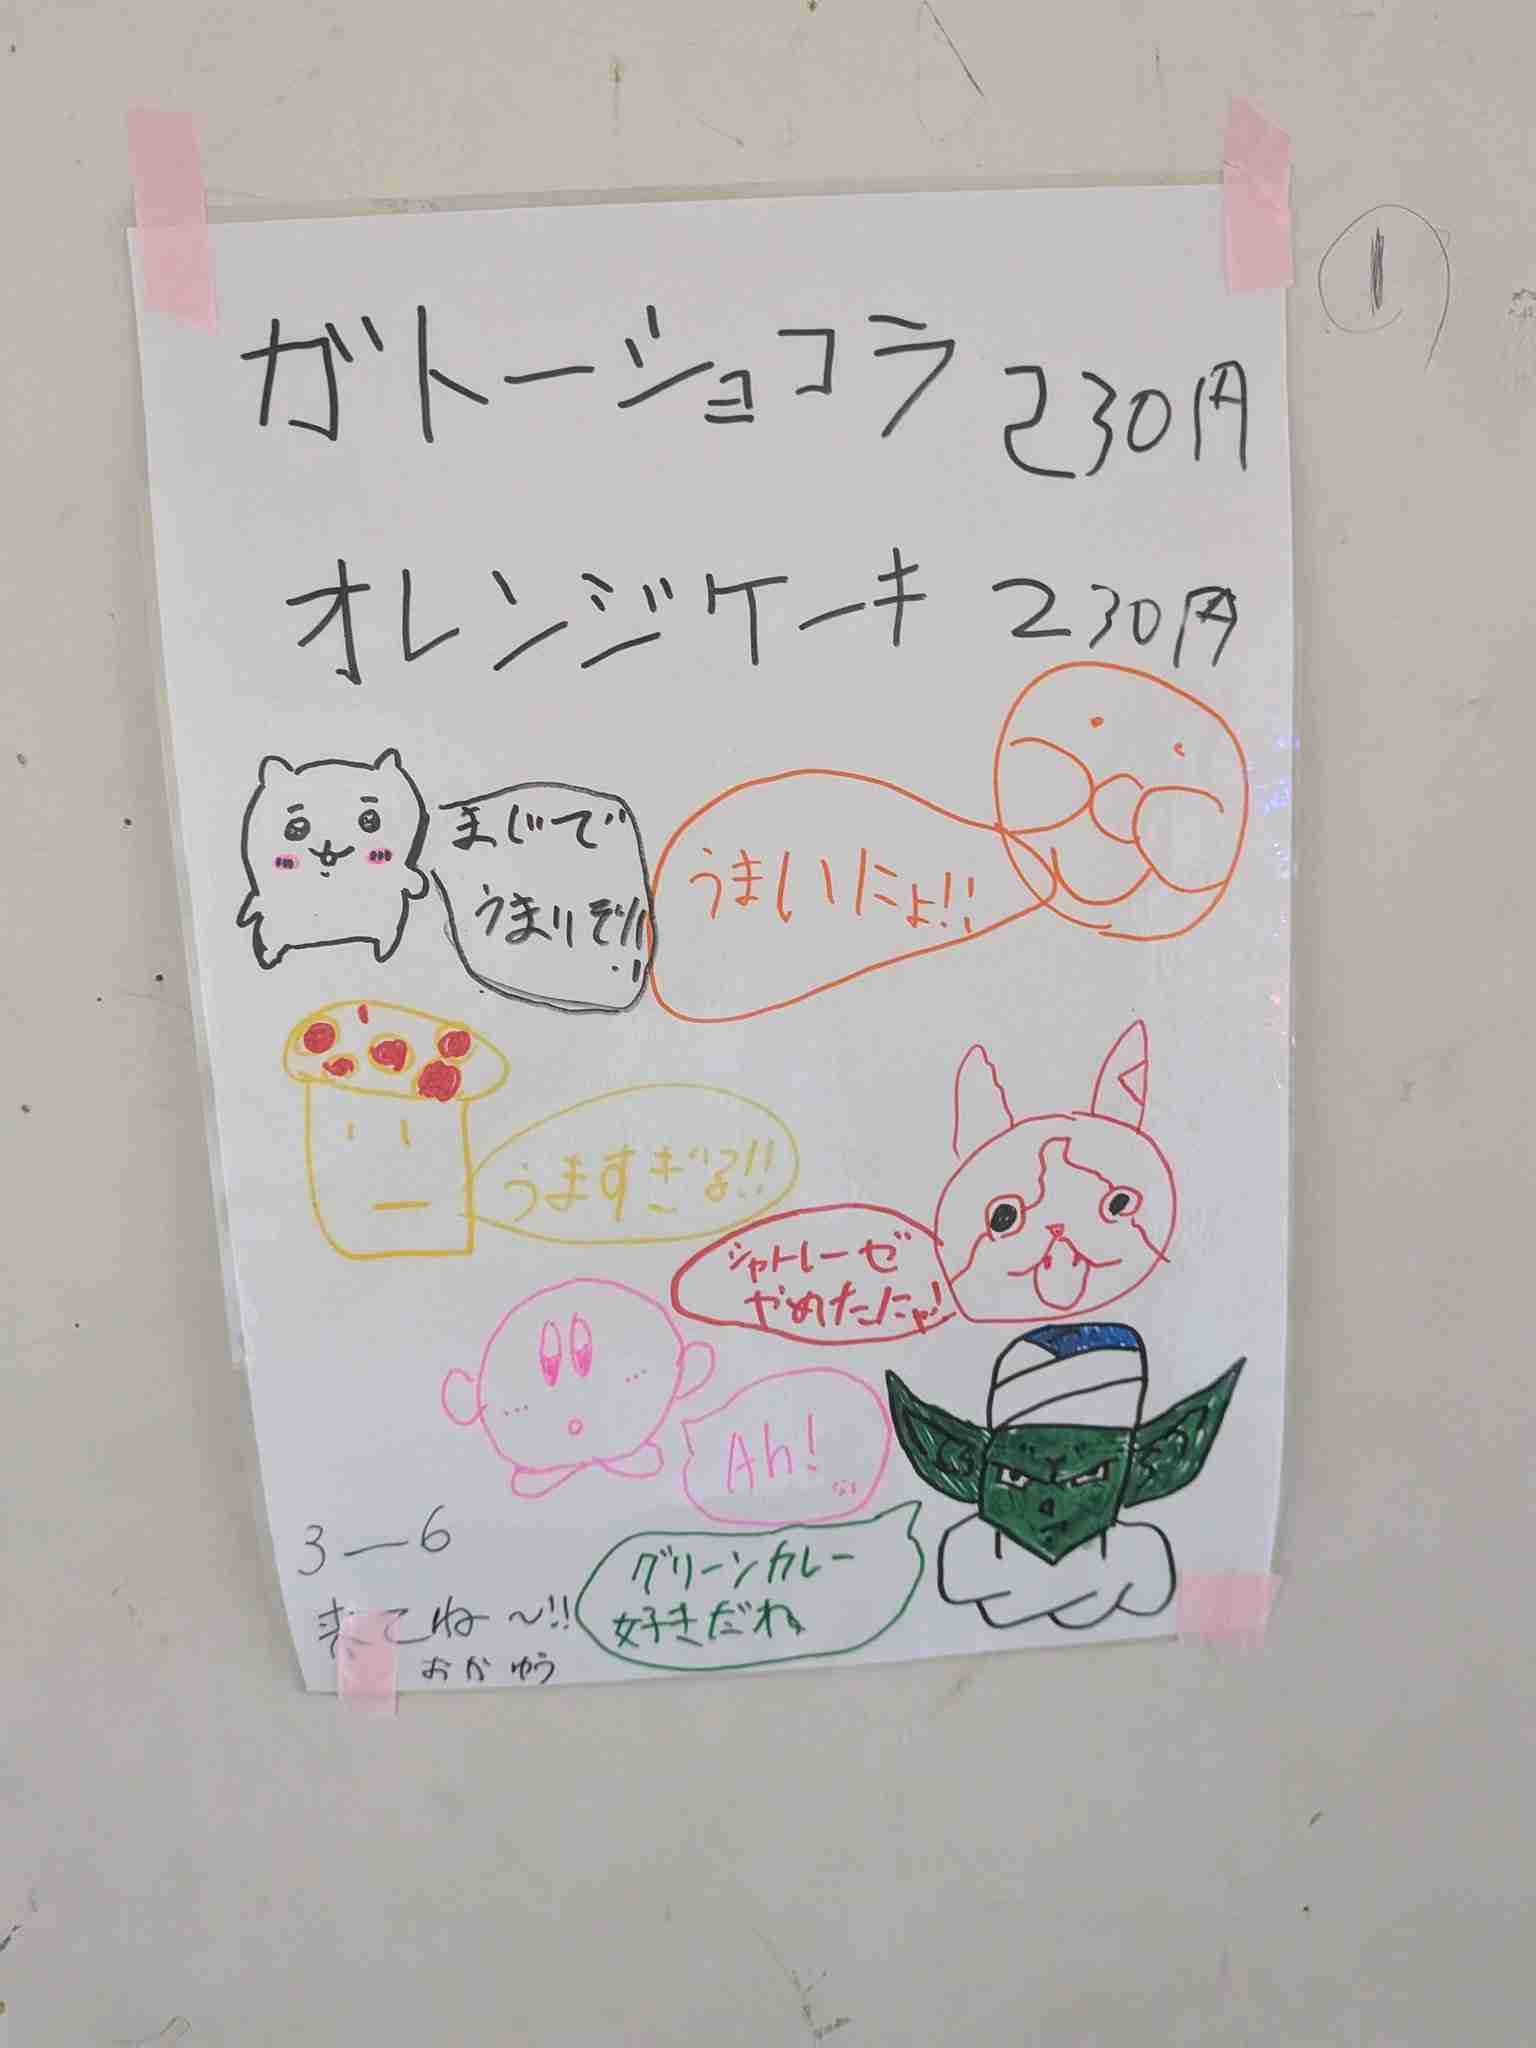 ガトーショコラ 230円
オレンジケーキ 230円
まじで
うまいぞ!!
うまいにょ!!
うますぎる!!
シャトレーゼ
やめたにゃ!
Ah!
グリーンカレー
好きだね
3―6
来てね〜!!
おかゆう
1